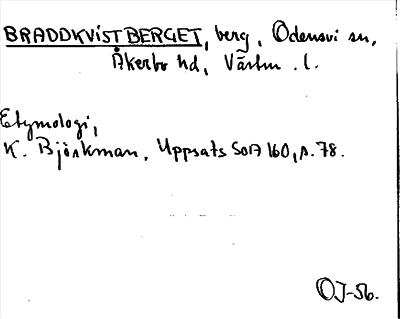 BRADDKVISTBERGET, berg, Odensvi sn,
Åkerbo hd, Västm. l.
Etymologi,
K. Björkman, Uppsats SOÄ 160, s. 78.
OJ-56.